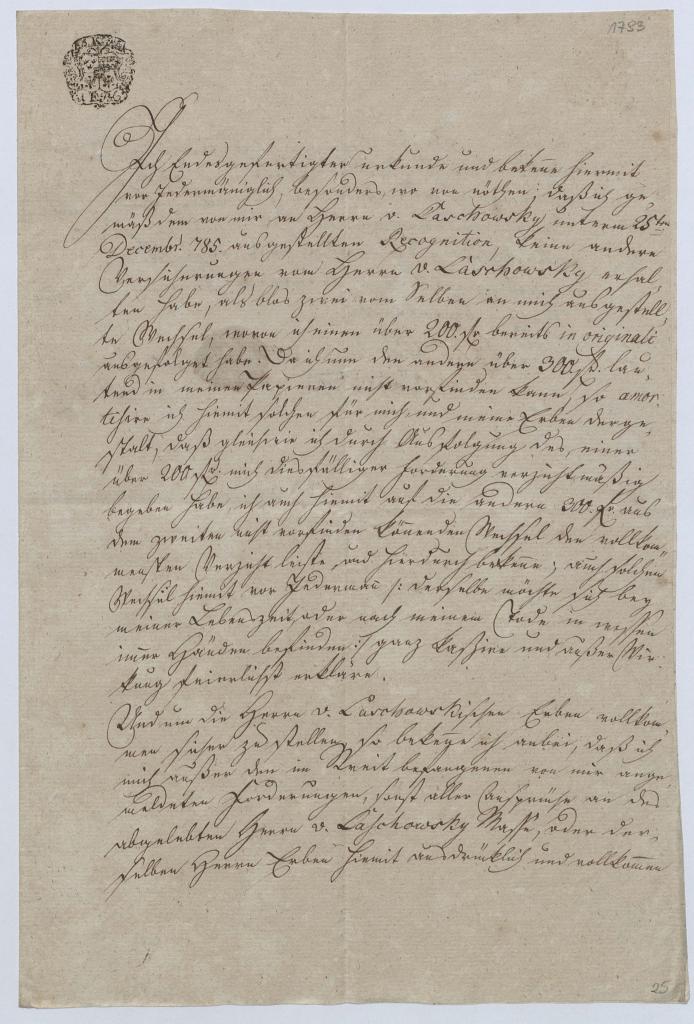 1793
Ich Endesgefertigter urkunde und bekenne hiermit
vor Jedermäniglich, besonders, wo von nöthen; daß ich ge¬
mäß dem von mir an Herrn v. Laschowsky unterm 25ten
Decembr. 785. ausgestellten Recognition, keine andere
Versicherungen vom Herrn v. Laschowsky erhal¬
ten habe, als blos zwei vom Selben an mich ausgestell¬
te Wechsel, wovon ich einen über 200. fr bereits in originali
ausgefolget habe. Da ich nun den andern über 300 fl. lau¬
tend in meinen Papieren nicht vorfinden kann, so amor¬
tisire ich hiemit solchen für mich und meine Erben derge¬
stalt, daß gleichwie ich durch Ausfolgung des einen
über 200 fr. mich diesfälliger Forderung verzichtmäßig
begeben habe, ich auch hiemit auf die andern 300. fr. aus
dem zweiten nicht vorfinden könnenden Wechsel den vollkom¬
mensten Verzicht leiste, und hierdurch bekenne; auch solchen
Wechsel hiemit vor Jedermann /: derselbe möchte sich bey
meiner Lebenszeit, oder nach meinem Tode in wessen
immer Händen befinden :/ ganz kassire und außer Wir¬
kung feierlichst erkläre.
Und um die Herrn v. Laschowskischen Erben vollkom¬
men sicher zu stellen, so bekenne ich anbei, daß ich
mich außer den im Streit befangenen von mir ange¬
meldeten Forderungen, sonst aller Ansprüche an des
abgelebten Herrn v. Laschowsky Masse, oder der¬
selben Herrn Erben hiemit ausdrücklich und vollkommen
25